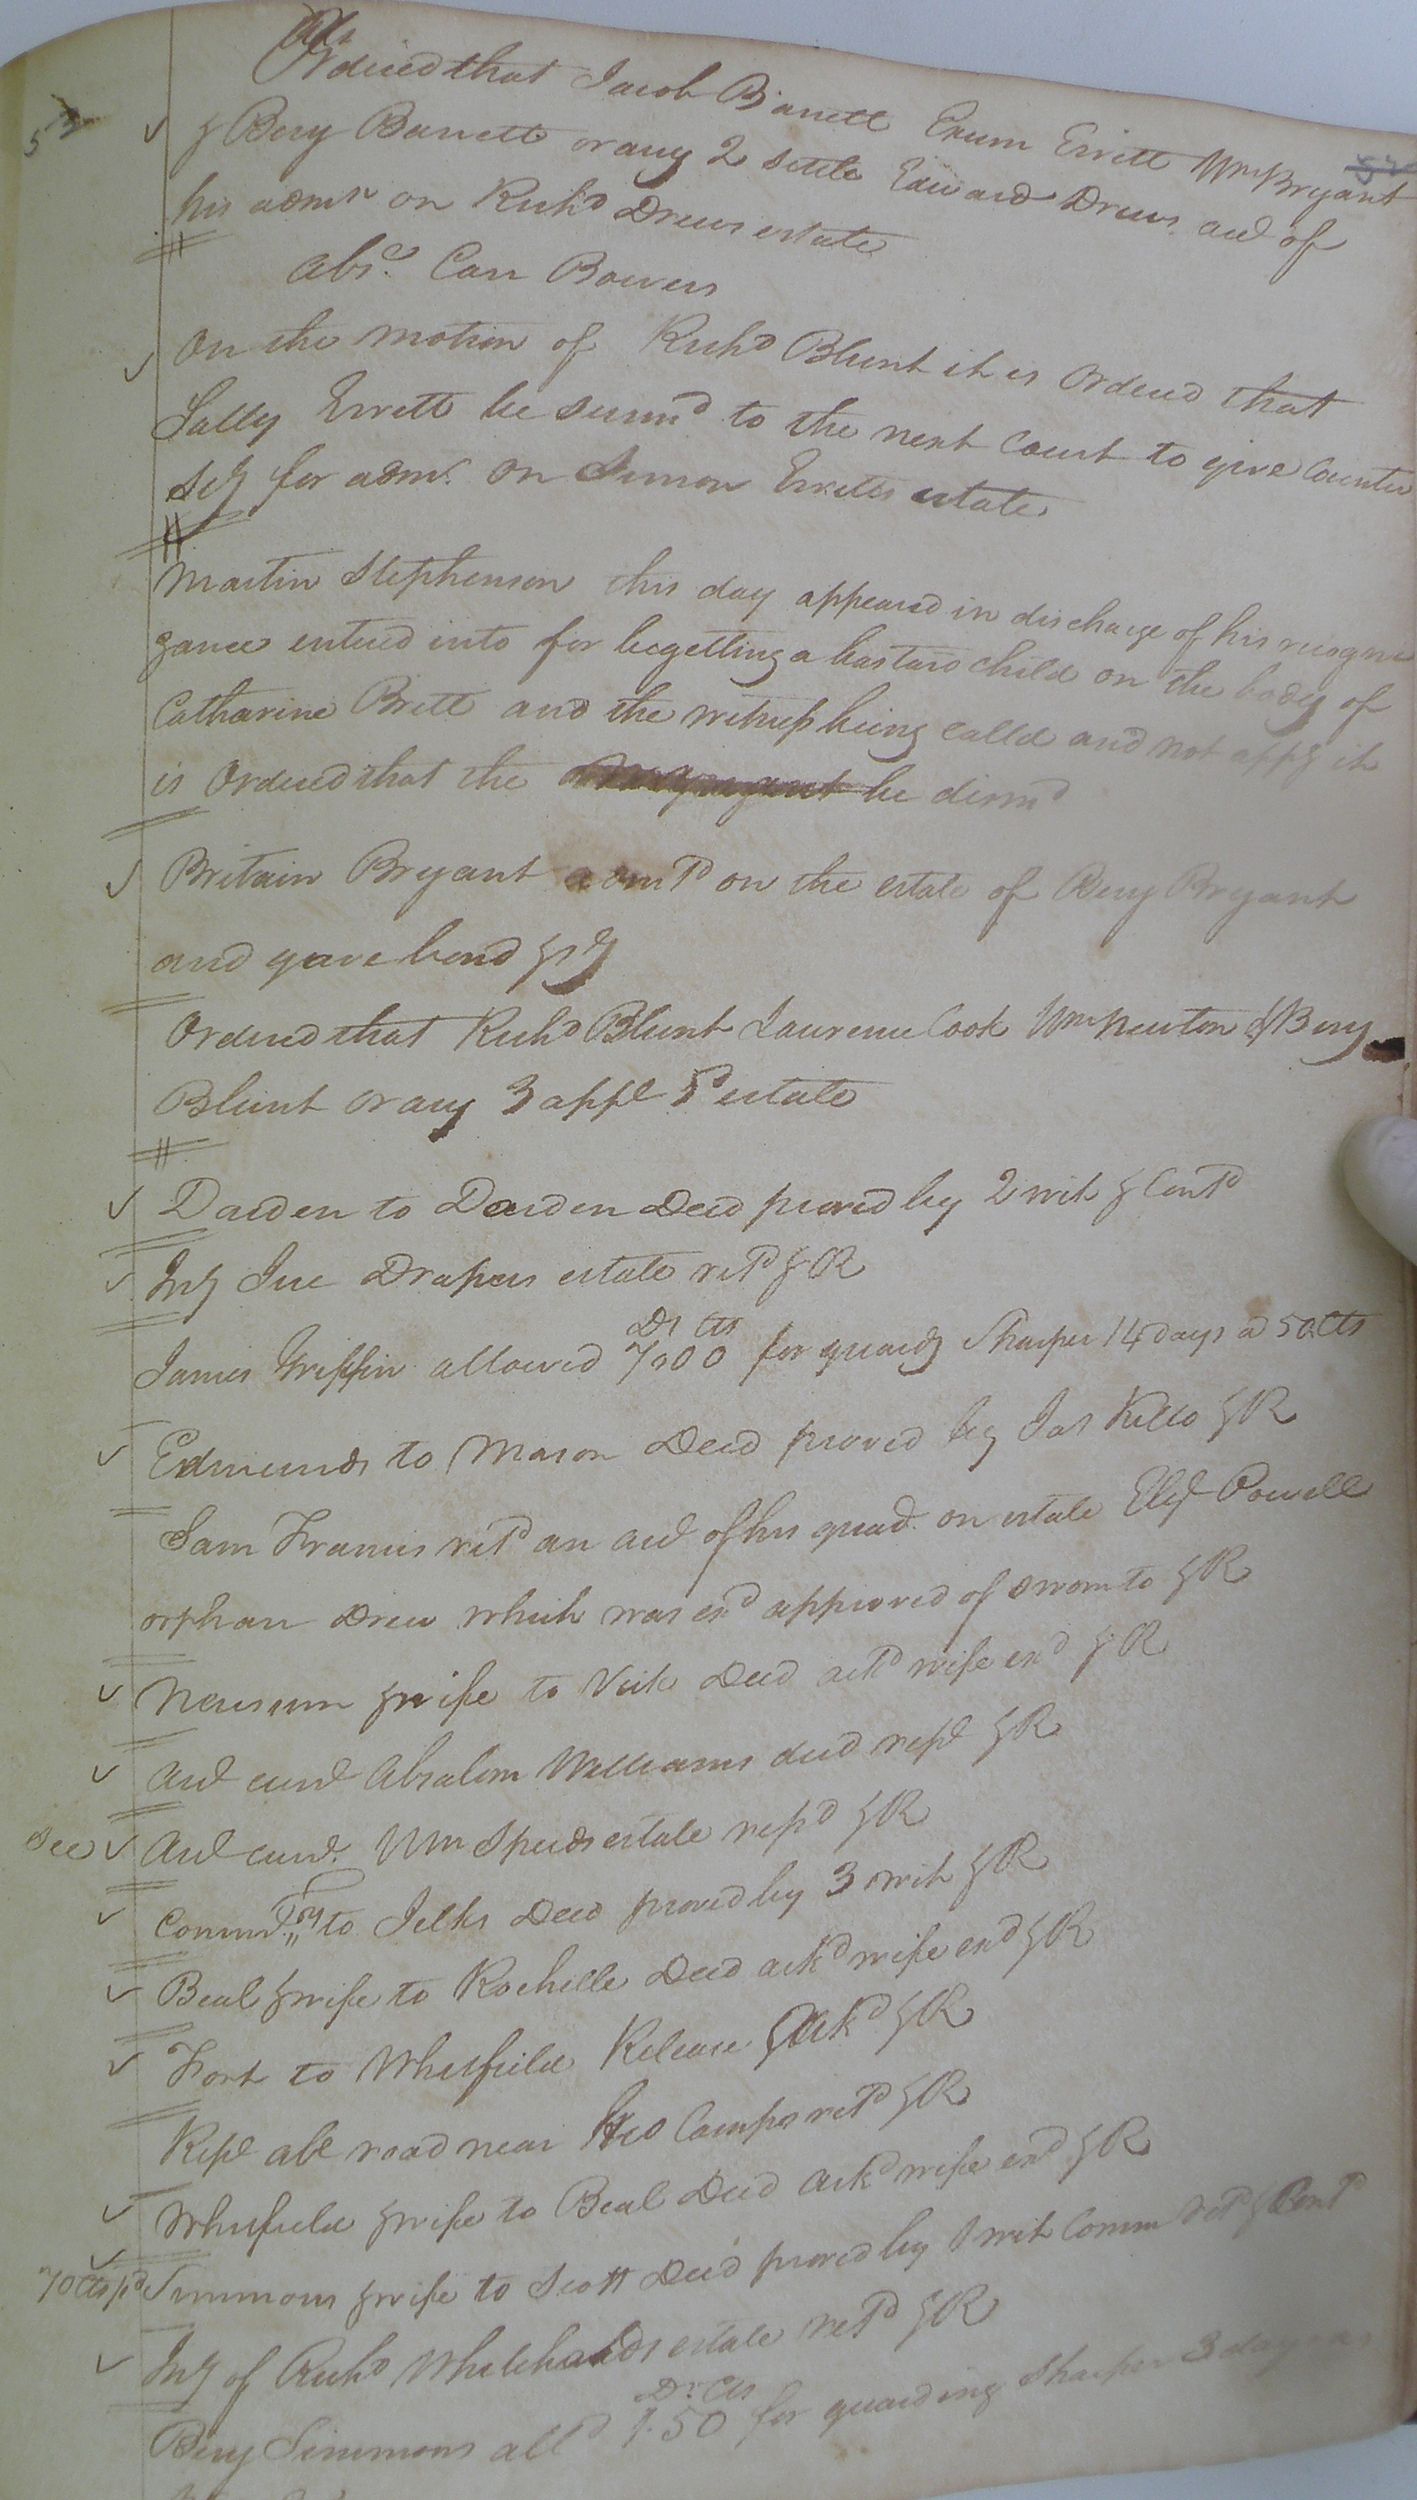 Ordered that Jacob Barrett Exum Errett Wm Bryant
& Benj Barrett or any 2 settle Edward Drews acct of
his admn on Richd Drews estate
abst. Carr Bowers
On the motion of Richd Blunt it is Ordered that
Sally Errett be summd to the next Court to give Counter
Scy for admn. on Simon Erretts estate
Martin Stephenson this day appeared in discharge of his recogni
zance entered into for begetting a bastard child on the body of
Catharine Brett and the witness being called and not appg it
is Ordered that the be dismd
Britain Bryant admtd on the estate of Benj Bryant
and gave bond & Sy
Ordered that Richd Blunt Laurence Cook Wm Newton & Benj
Blunt or any 3 appe sd estate
Darden to Darden Deed proved by 2 wit & Contd
Invy Drapers estate retd & R
Drs Cts
James Griffin allowed 7.00 for guardg Sharper 14 days a 50 Cts
Edmunds to Mason Deed proved by Jas Kello & R
Sam Francis retd an acct of his guad. on estate Powell
orphan Drew which was exd approved of sworn to & R
Newsum & wife to Vick Deed ackd wife exd & R
Acct curt Absalom Williams decd retd & R
See Acct curt. Wm Speeds estate retd & R
to Jelks Deed proved by 3 wit & R
Beal & wife to Rochelle Deed ackd wife exd & R
Fort to Whitfield Release & ackd & R
Rept abt road near Camps retd & R
Whitfield & wife to Beal Deed ackd wife exd & R
70 Cts pd Simmons & wife to Scott Deed proved by 1 wit Comm retd & Contd
Invy of Richd Whiteheads estate retd & R
Dr. Cts
Benj Simmons alld 1.50 for guarding Sharper 3 days